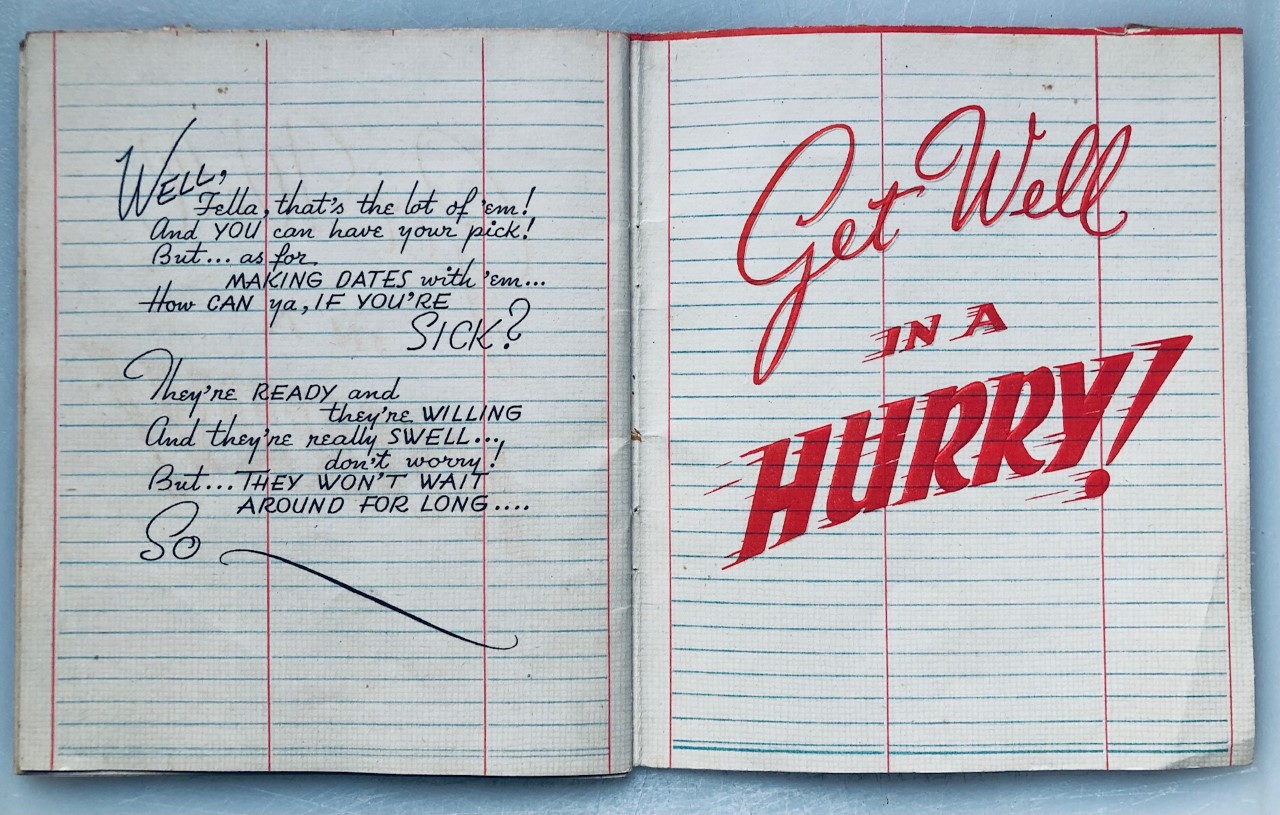 WELL,
Fella, that's the lot of 'em!
And YOU can have your pick!
But... as for
MAKING DATES with 'em...
How CAN ya, IF YOU'RE
SICK?
They're READY and
they're WILLING
And they're really SWELL...
don't worry!
But... THEY WON'T WAIT
AROUND FOR LONG....
So
Get Well
IN A
HURRY!